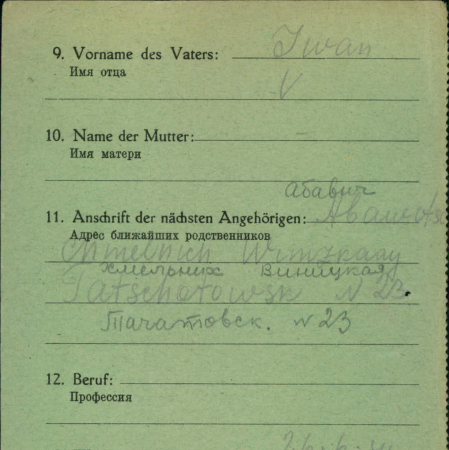 9. Vorname des Vaters: Iwan
Имя отца
V
10. Name der Mutter: –
Имя матери
абавич
11. Anschrift der nächsten Angehörigen:
Адрес ближайших родственников
Chmelnich Winzkaay
Хмельник Виницкая
Tatscharowsk N 23.
Тачатовск. N 23
12. Beruf:
Профессия